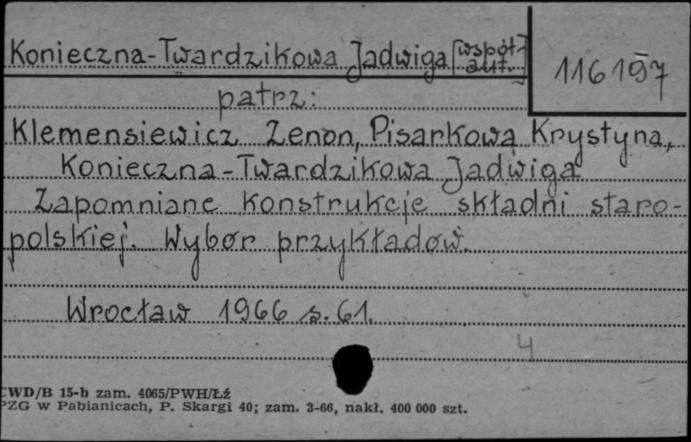 Konieczna-Twardzikowa Jadwiga [współ-
aut.]
116197
patrz:
Klemensiewicz Zenon, Pisarkowa Krystyna,
Konieczna-Twardzikowa Jadwiga
Zapomniane konstrukcje składni staro-
polskiej. Wybór przykładów.
Wrocław 1966 s. 61.
4
CWD/B 15-b zam. 4065/PWH/Łź
PZG w Pabianicach, P. Skargi 40; zam. 3-66, nakł. 400 000 szt.